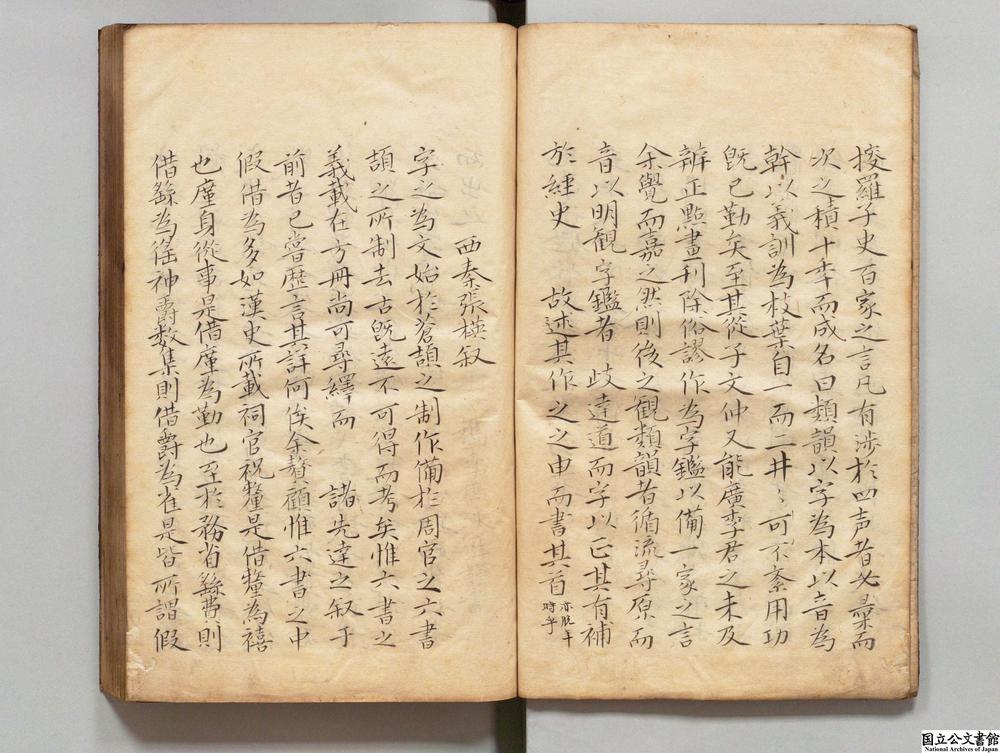 捘羅子史百家之言凡有涉於四声者必彙而
次之積十季而成名曰類韻以字為本以音為
幹以義訓為枝葉自一而二井〻可不紊用功
既已勤矣至其從子文仲又能廣季君之未及
辨正點畫刊除俗謬作為字鑑以備一家之言
余覺而嘉之然則後之観類韻者循流尋原而
音以明観字鑑者　歧達道而字以正其有補
於経史　故述其作之之由而書其首
西秦張楧叙
字之為文始於蒼頡之制作備於周官之六書
頡之所制去古既遠不可得而考矣惟六書之
義載在方冊尚可尋繹而　諸先達之叙于
前者已嘗歴言其詳何俟余贅顧惟六書之中
假借為多如漢史所載祠官祝釐是借釐為禧
也廑身從事是借廑為勤也至於務省繇費則
借繇為徭神爵数集則借爵為雀是皆所謂假
国立公文書館
National Archives of Japan